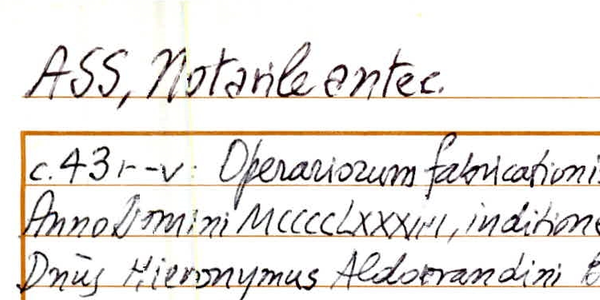 ASS, Notarile antec.
c. 43 r-v: Operariorum fabricationis
Anno Domini MCCCCLXXXIIII, inditione
Dnūs Hieronymus Aldobrandini B